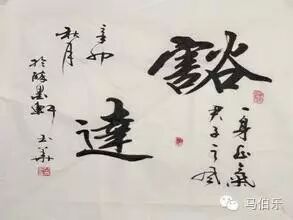 豁
達
一身正氣
君子之风
辛卯
秋月
於醉墨軒
玉華
马伯乐